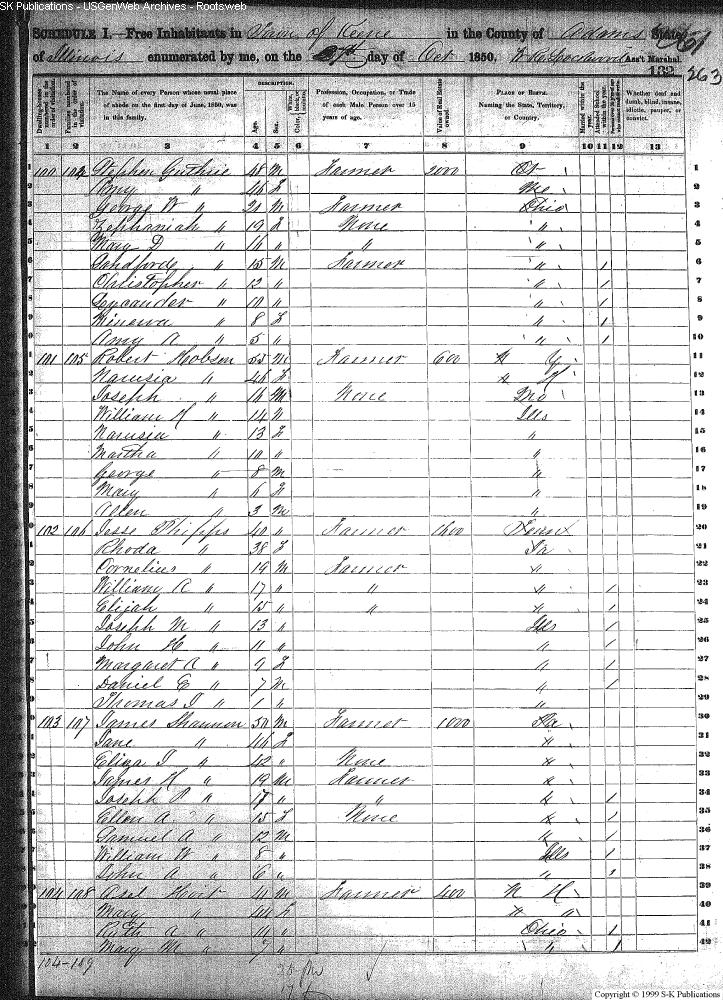 SK Publications - USGenWeb Archives - Rootsweb
SCHEDULE I.—Free Inhabitants in Town of Keene in the County of Adams State
of Illinois enumerated by me, on the day of Oct 1850. Ass't Marshal.
132 263
Dwelling-houses numbered in the order of visitation.
Families numbered in the order of visitation.
The Name of every Person whose usual place of abode on the first day of June, 1850, was in this family.
DESCRIPTION.
Age.
Sex.
Color, White, black, or mulatto.
Profession, Occupation, or Trade of each Male Person over 15 years of age.
Value of Real Estate owned.
PLACE OF BIRTH. Naming the State, Territory, or Country.
Married within the year.
Attended School within the year.
Whether deaf and dumb, blind, insane, idiotic, pauper, or convict.
1 2 3 4 5 6 7 8 9 10 11 12 13
100 104 Stephen Guthrie 48 M Farmer 2000 Ct 1
Amy " 46 F 2
George W " 21 M Farmer Ohio 3
Zephaniah " 19 F None " 4
Mary D " 16 " " " 5
Sandford " 15 M Farmer " 1 6
Christopher " 12 " " 1 7
" 10 " " 1 8
Minerva " 8 F " 1 9
Amy A " 5 " " 1 10
101 105 Robert Hobson 55 M Farmer 600 N Y 11
Narusia " 46 F 12
Joseph " 16 M None Mo 13
William H " 14 " Ills 14
Narusia " 13 F " 15
Martha " 10 " " 16
George " 8 M " 17
Mary " 6 F " 18
Allen " 3 M " 19
102 106 Jesse Phipps 40 " Farmer 1400 Tenn 20
Rhoda " 38 F 21
Cornelius " 19 M Farmer " 22
William A " 17 " " " 1 23
Elijah " 15 " " " 1 24
Joseph M " 13 " Ills 1 25
John H " 11 " " 1 26
Margaret A " 9 F " 1 27
Daniel E " 7 M " 1 28
Thomas J " 1 " " 29
103 107 James Shannon 50 M Farmer 1000 Pa 30
Jane " 46 F " 31
Eliza J " 42 " None " 32
James H " 19 M Farmer " 33
Joseph P " 17 " " " 1 34
Ellen A " 15 F None " 1 35
Samuel A " 12 M " 1 36
William W " 8 " Ills 1 37
John A " 6 " " 38
104 108 Asel Hoit 41 M Farmer 400 N H 39
Mary " 44 F " " 40
Ruth A " 11 " Ohio 1 41
Mary M " 7 " " 1 42
104-109
Copyright © 1999 S-K Publications